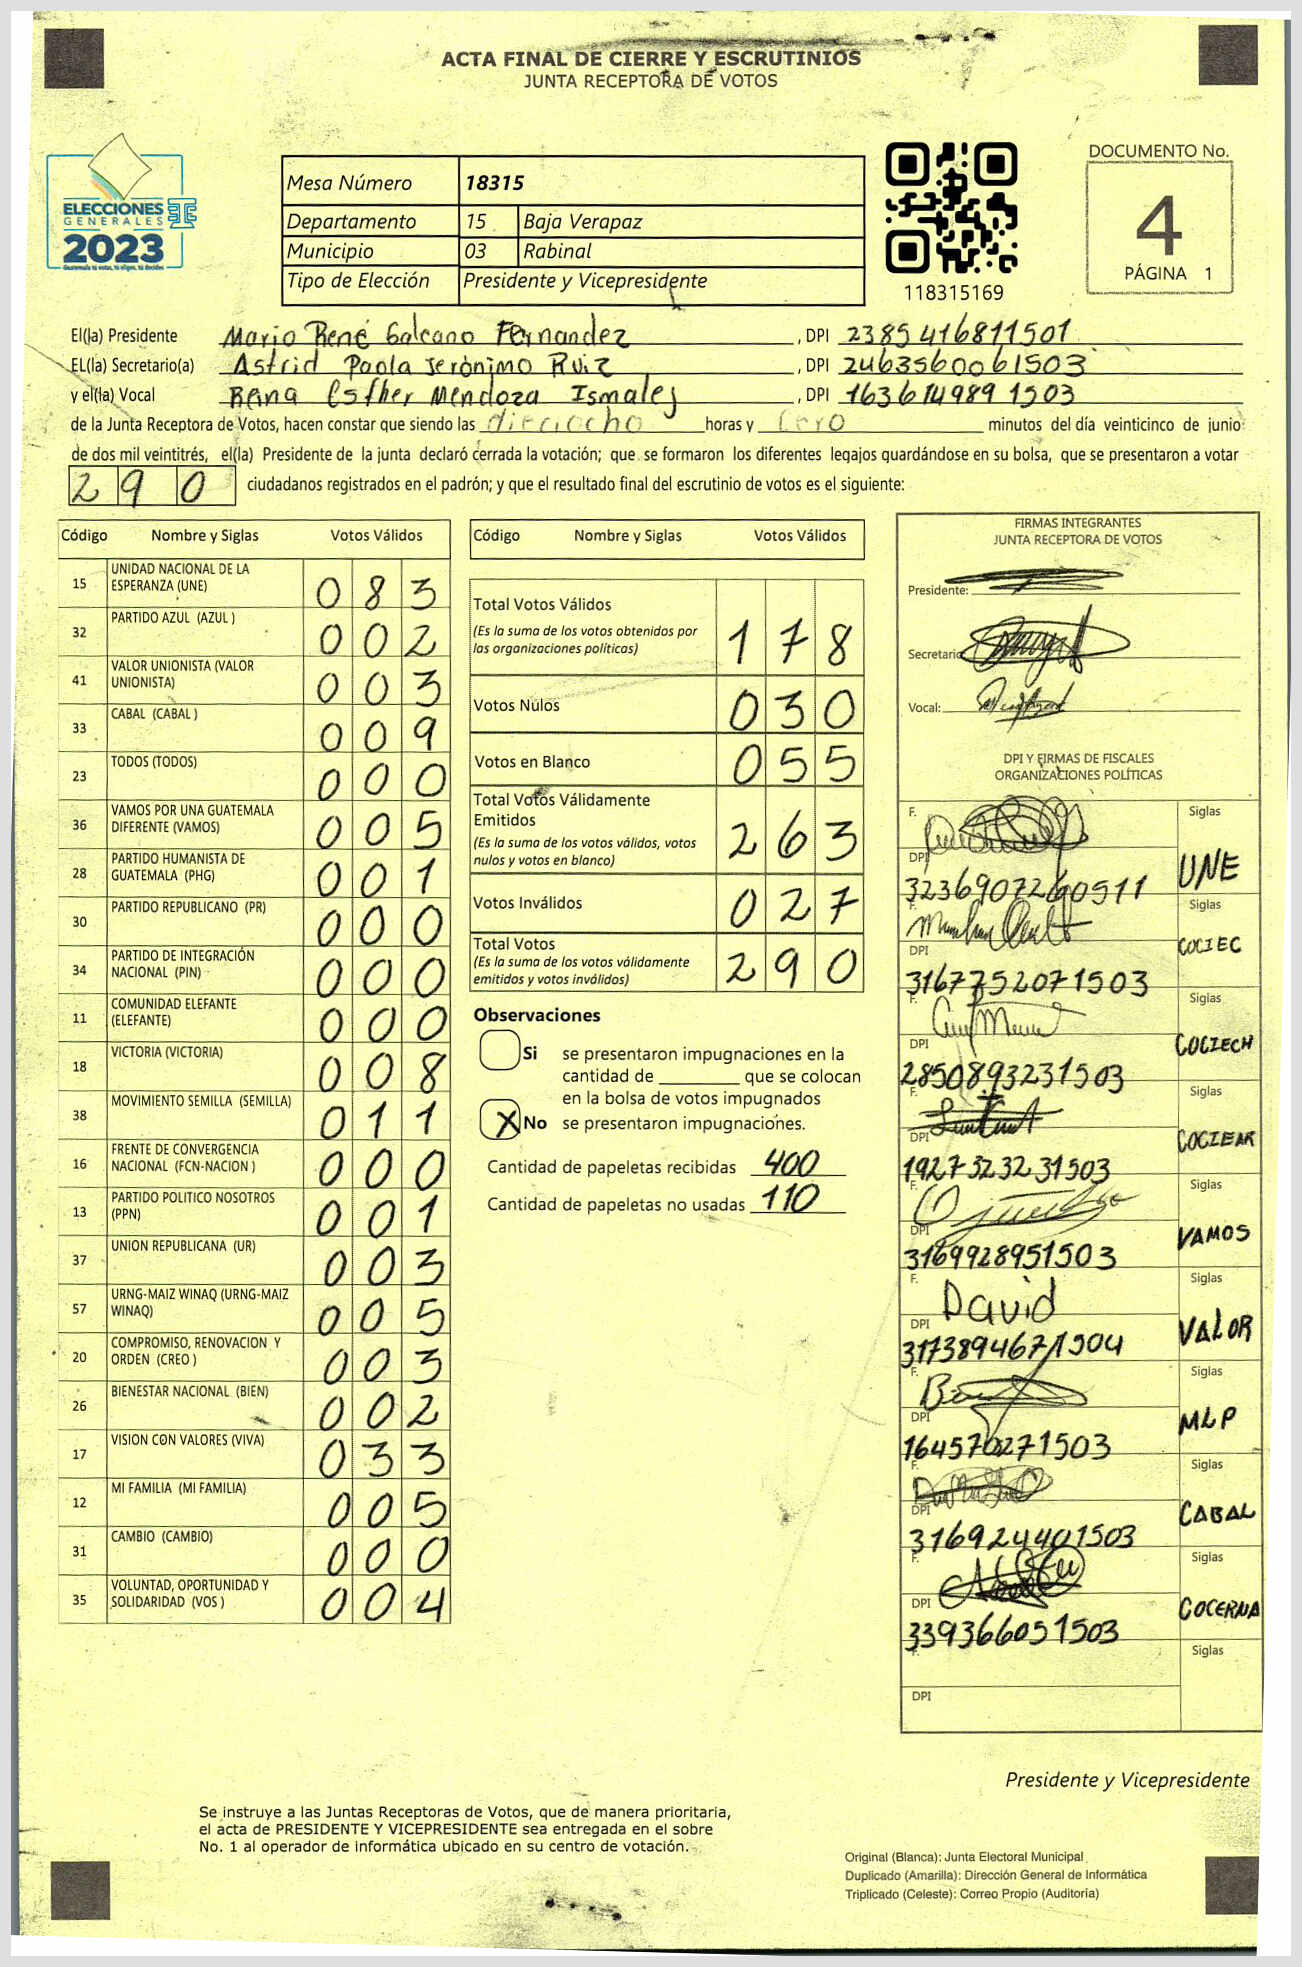 ACTA FINAL DE CIERRE Y ESCRUTINIOS
JUNTA RECEPTORA DE VOTOS
ELECCIONES
GENERALES
2023
Mesa Número 18315
Departamento 15 Baja Verapaz
Municipio 03 Rabinal
Tipo de Elección Presidente y Vicepresidente
118315169
DOCUMENTO No.
4
PÁGINA 1
El(la) Presidente Mario René Galeano Fernandez, DPI 2385416811501
EL(la) Secretario(a) Astrid Paola Jerónimo Ruiz, DPI 2463560061503
y el(la) Vocal Reina Esther Mendoza Ismalej, DPI 1636149891503
de la Junta Receptora de Votos, hacen constar que siendo las dieciocho horas y cero minutos del día veinticinco de junio
de dos mil veintitrés, el(la) Presidente de la junta declaró cerrada la votación; que se formaron los diferentes legajos guardándose en su bolsa, que se presentaron a votar
290 ciudadanos registrados en el padrón; y que el resultado final del escrutinio de votos es el siguiente:
Código Nombre y Siglas Votos Válidos
15 UNIDAD NACIONAL DE LA ESPERANZA (UNE) 083
32 PARTIDO AZUL (AZUL ) 002
41 VALOR UNIONISTA (VALOR UNIONISTA) 003
33 CABAL (CABAL ) 009
23 TODOS (TODOS) 000
36 VAMOS POR UNA GUATEMALA DIFERENTE (VAMOS) 005
28 PARTIDO HUMANISTA DE GUATEMALA (PHG) 001
30 PARTIDO REPUBLICANO (PR) 000
34 PARTIDO DE INTEGRACIÓN NACIONAL (PIN) 000
11 COMUNIDAD ELEFANTE (ELEFANTE) 000
18 VICTORIA (VICTORIA) 008
38 MOVIMIENTO SEMILLA (SEMILLA) 011
16 FRENTE DE CONVERGENCIA NACIONAL (FCN-NACION ) 000
13 PARTIDO POLITICO NOSOTROS (PPN) 001
37 UNION REPUBLICANA (UR) 003
57 URNG-MAIZ WINAQ (URNG-MAIZ WINAQ) 005
20 COMPROMISO, RENOVACION Y ORDEN (CREO ) 003
26 BIENESTAR NACIONAL (BIEN) 002
17 VISION CON VALORES (VIVA) 033
12 MI FAMILIA (MI FAMILIA) 005
31 CAMBIO (CAMBIO) 000
35 VOLUNTAD, OPORTUNIDAD Y SOLIDARIDAD (VOS ) 004
Código Nombre y Siglas Votos Válidos
Total Votos Válidos 178
(Es la suma de los votos obtenidos por
las organizaciones políticas)
Votos Nulos 030
Votos en Blanco 055
Total Votos Válidamente
Emitidos 263
(Es la suma de los votos válidos, votos
nulos y votos en blanco)
Votos Inválidos 027
Total Votos 290
(Es la suma de los votos válidamente
emitidos y votos inválidos)
Observaciones
Si se presentaron impugnaciones en la
cantidad de ________ que se colocan
en la bolsa de votos impugnados
X No se presentaron impugnaciones.
Cantidad de papeletas recibidas 400
Cantidad de papeletas no usadas 110
FIRMAS INTEGRANTES
JUNTA RECEPTORA DE VOTOS
Presidente:
Secretario
Vocal:
DPI Y FIRMAS DE FISCALES
ORGANIZACIONES POLÍTICAS
F. Siglas
DPI 3236907260511 UNE
F. Siglas
DPI 3167752071503 COCIEC
F. Siglas
DPI 2850893231503 COCIECH
F. Siglas
DPI 1927323231503 COCIEAR
F. Siglas
DPI 3169928951503 VAMOS
F. David Siglas
DPI 3173894671504 VALOR
F. Siglas
DPI 164570271503 MLP
F. Siglas
DPI 316924401503 CABAL
F. Siglas
DPI 339366051503 COCERNA
F. Siglas
DPI
Presidente y Vicepresidente
Se instruye a las Juntas Receptoras de Votos, que de manera prioritaria,
el acta de PRESIDENTE Y VICEPRESIDENTE sea entregada en el sobre
No. 1 al operador de informática ubicado en su centro de votación.
Original (Blanca): Junta Electoral Municipal
Duplicado (Amarilla): Dirección General de Informática
Triplicado (Celeste): Correo Propio (Auditoría)